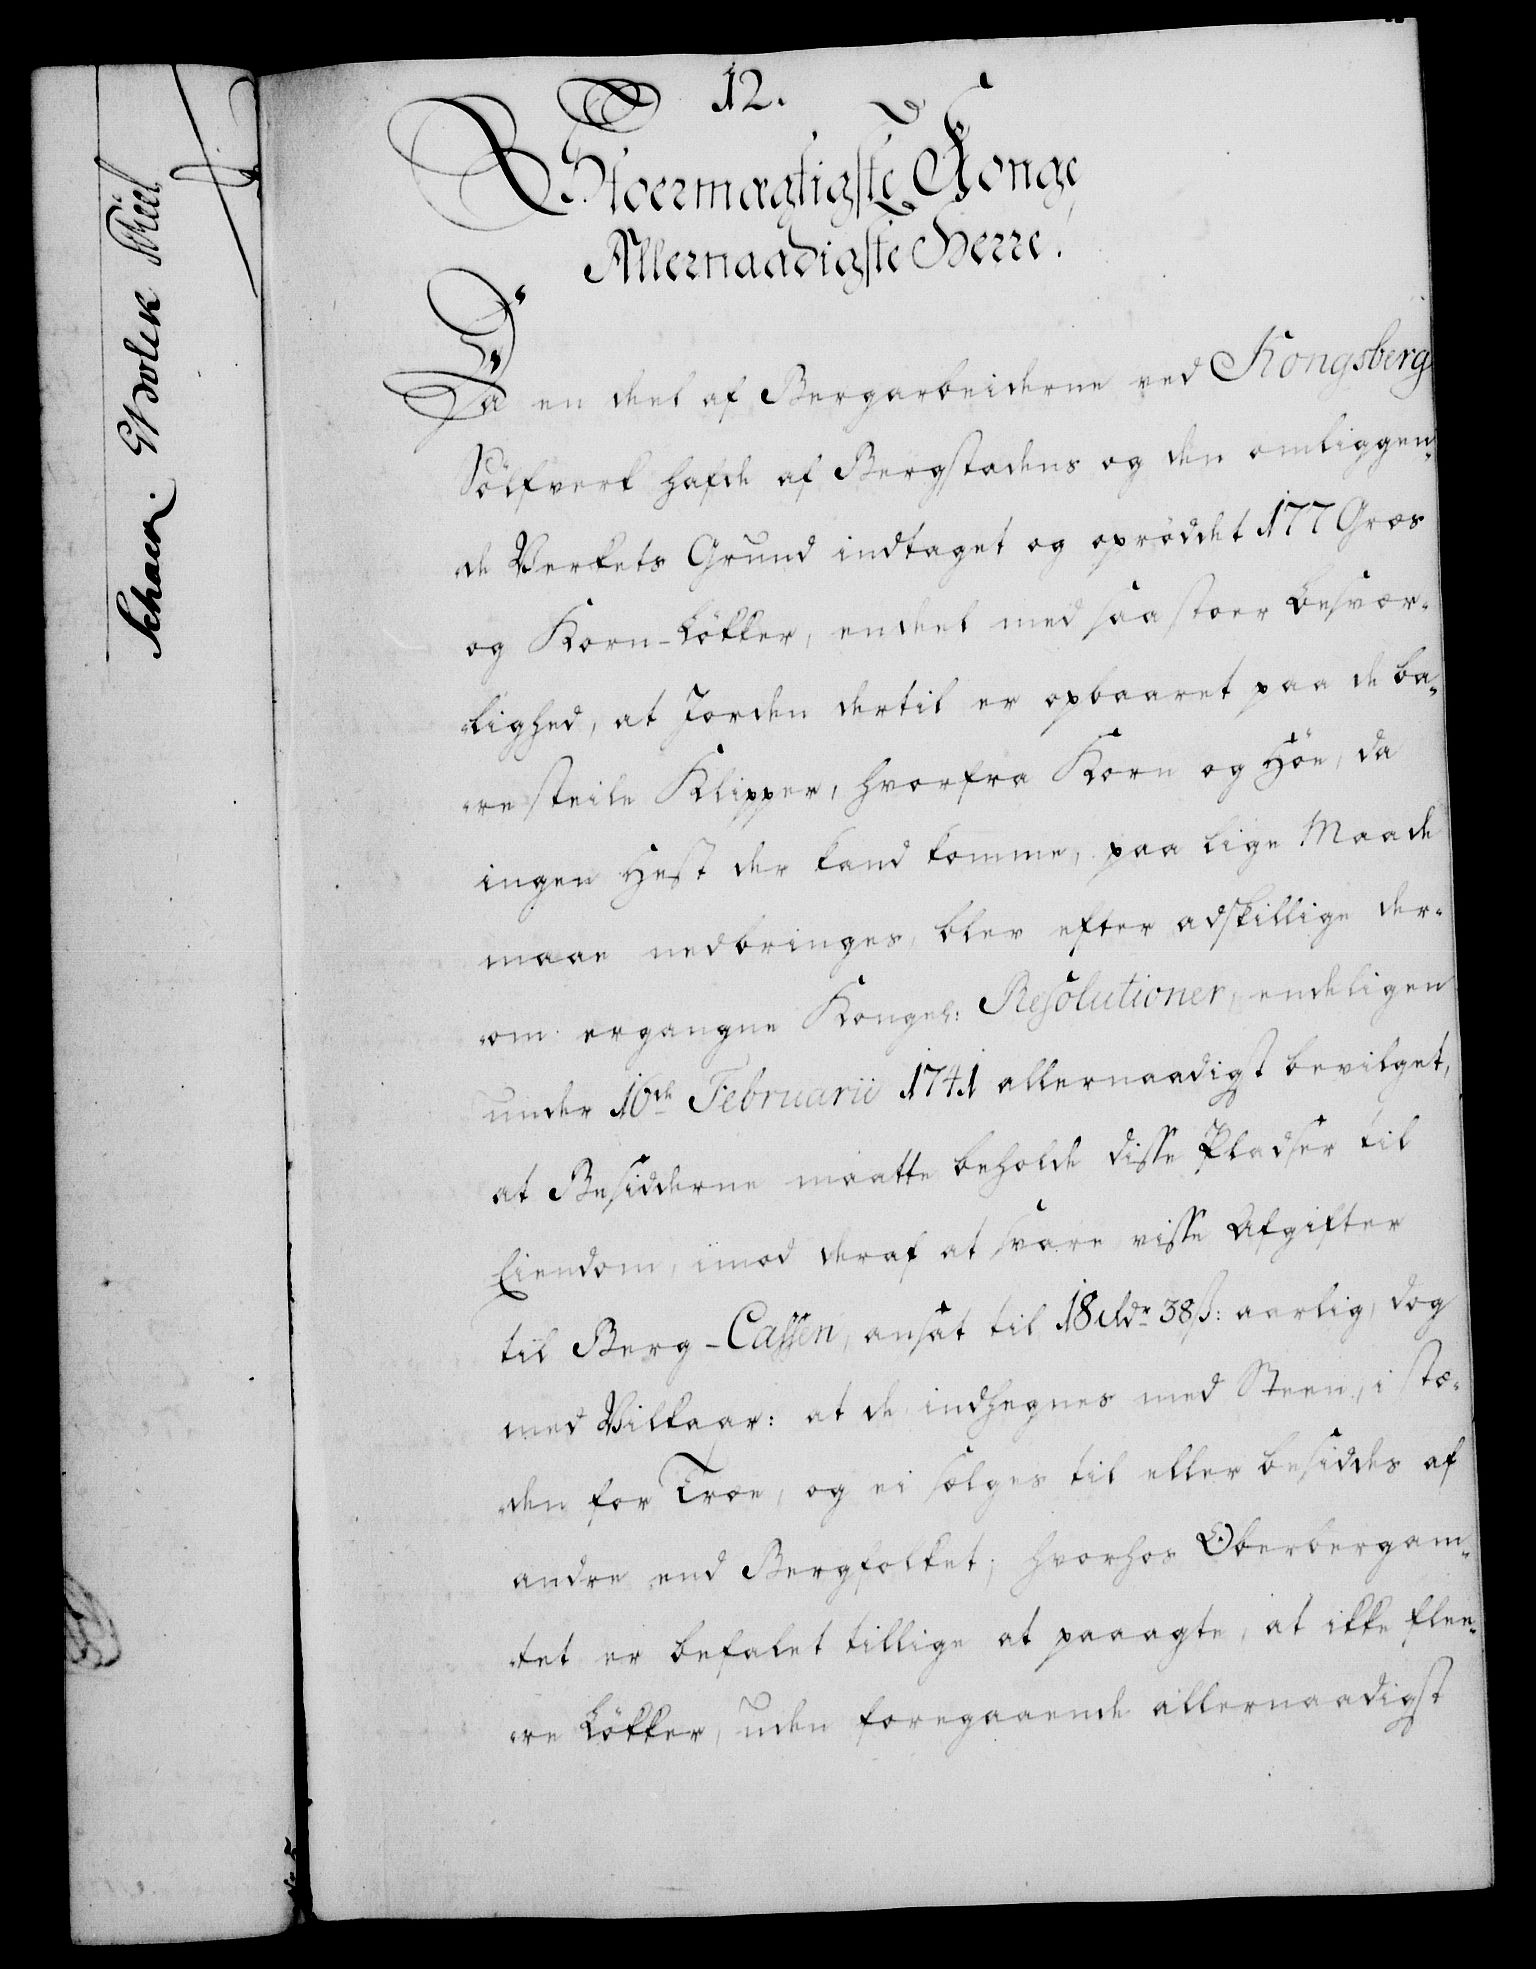 12.
Stoermægtigste Konge,
Allernaadigste Herre.
Da en deel af Bergarbeiderne ved Kongsberg
Sölfverk hafde af Bergstadens og den omliggen-
de Verkets Grund indtaget og oprÿddet 177 Græs
og Korn-Lökker, endeel med saa stoer besvær-
lighed, at Jorden dertil er opbaaret paa de ba-
re steile Klipper, hvorfra Korn og Höe, da
ingen Hest der kand komme, paa lige Maade
maae nedbringes, blev efter adskillige der-
om ergangne Kongel: Resolutioner, endeligen
under 16de Februarii 1741 allernaadigst bevilget,
at Besidderne maatte beholde disse Pladser til
Eiendom, imod deraf at svare visse Afgifter
til Berg-Cassen, ansat til 18 Rdr 38 ß: aarlig, dog
med Vilkaar: at de indhegnes med Steen, i stæ-
den for Træe, og ei sælges til eller besiddes af
andre end Bergfolket; hvorhos Oberbergam-
tet er befalet tillige at paaagte, at ikke flee-
re Lökker, uden foregaaende allernaadigst